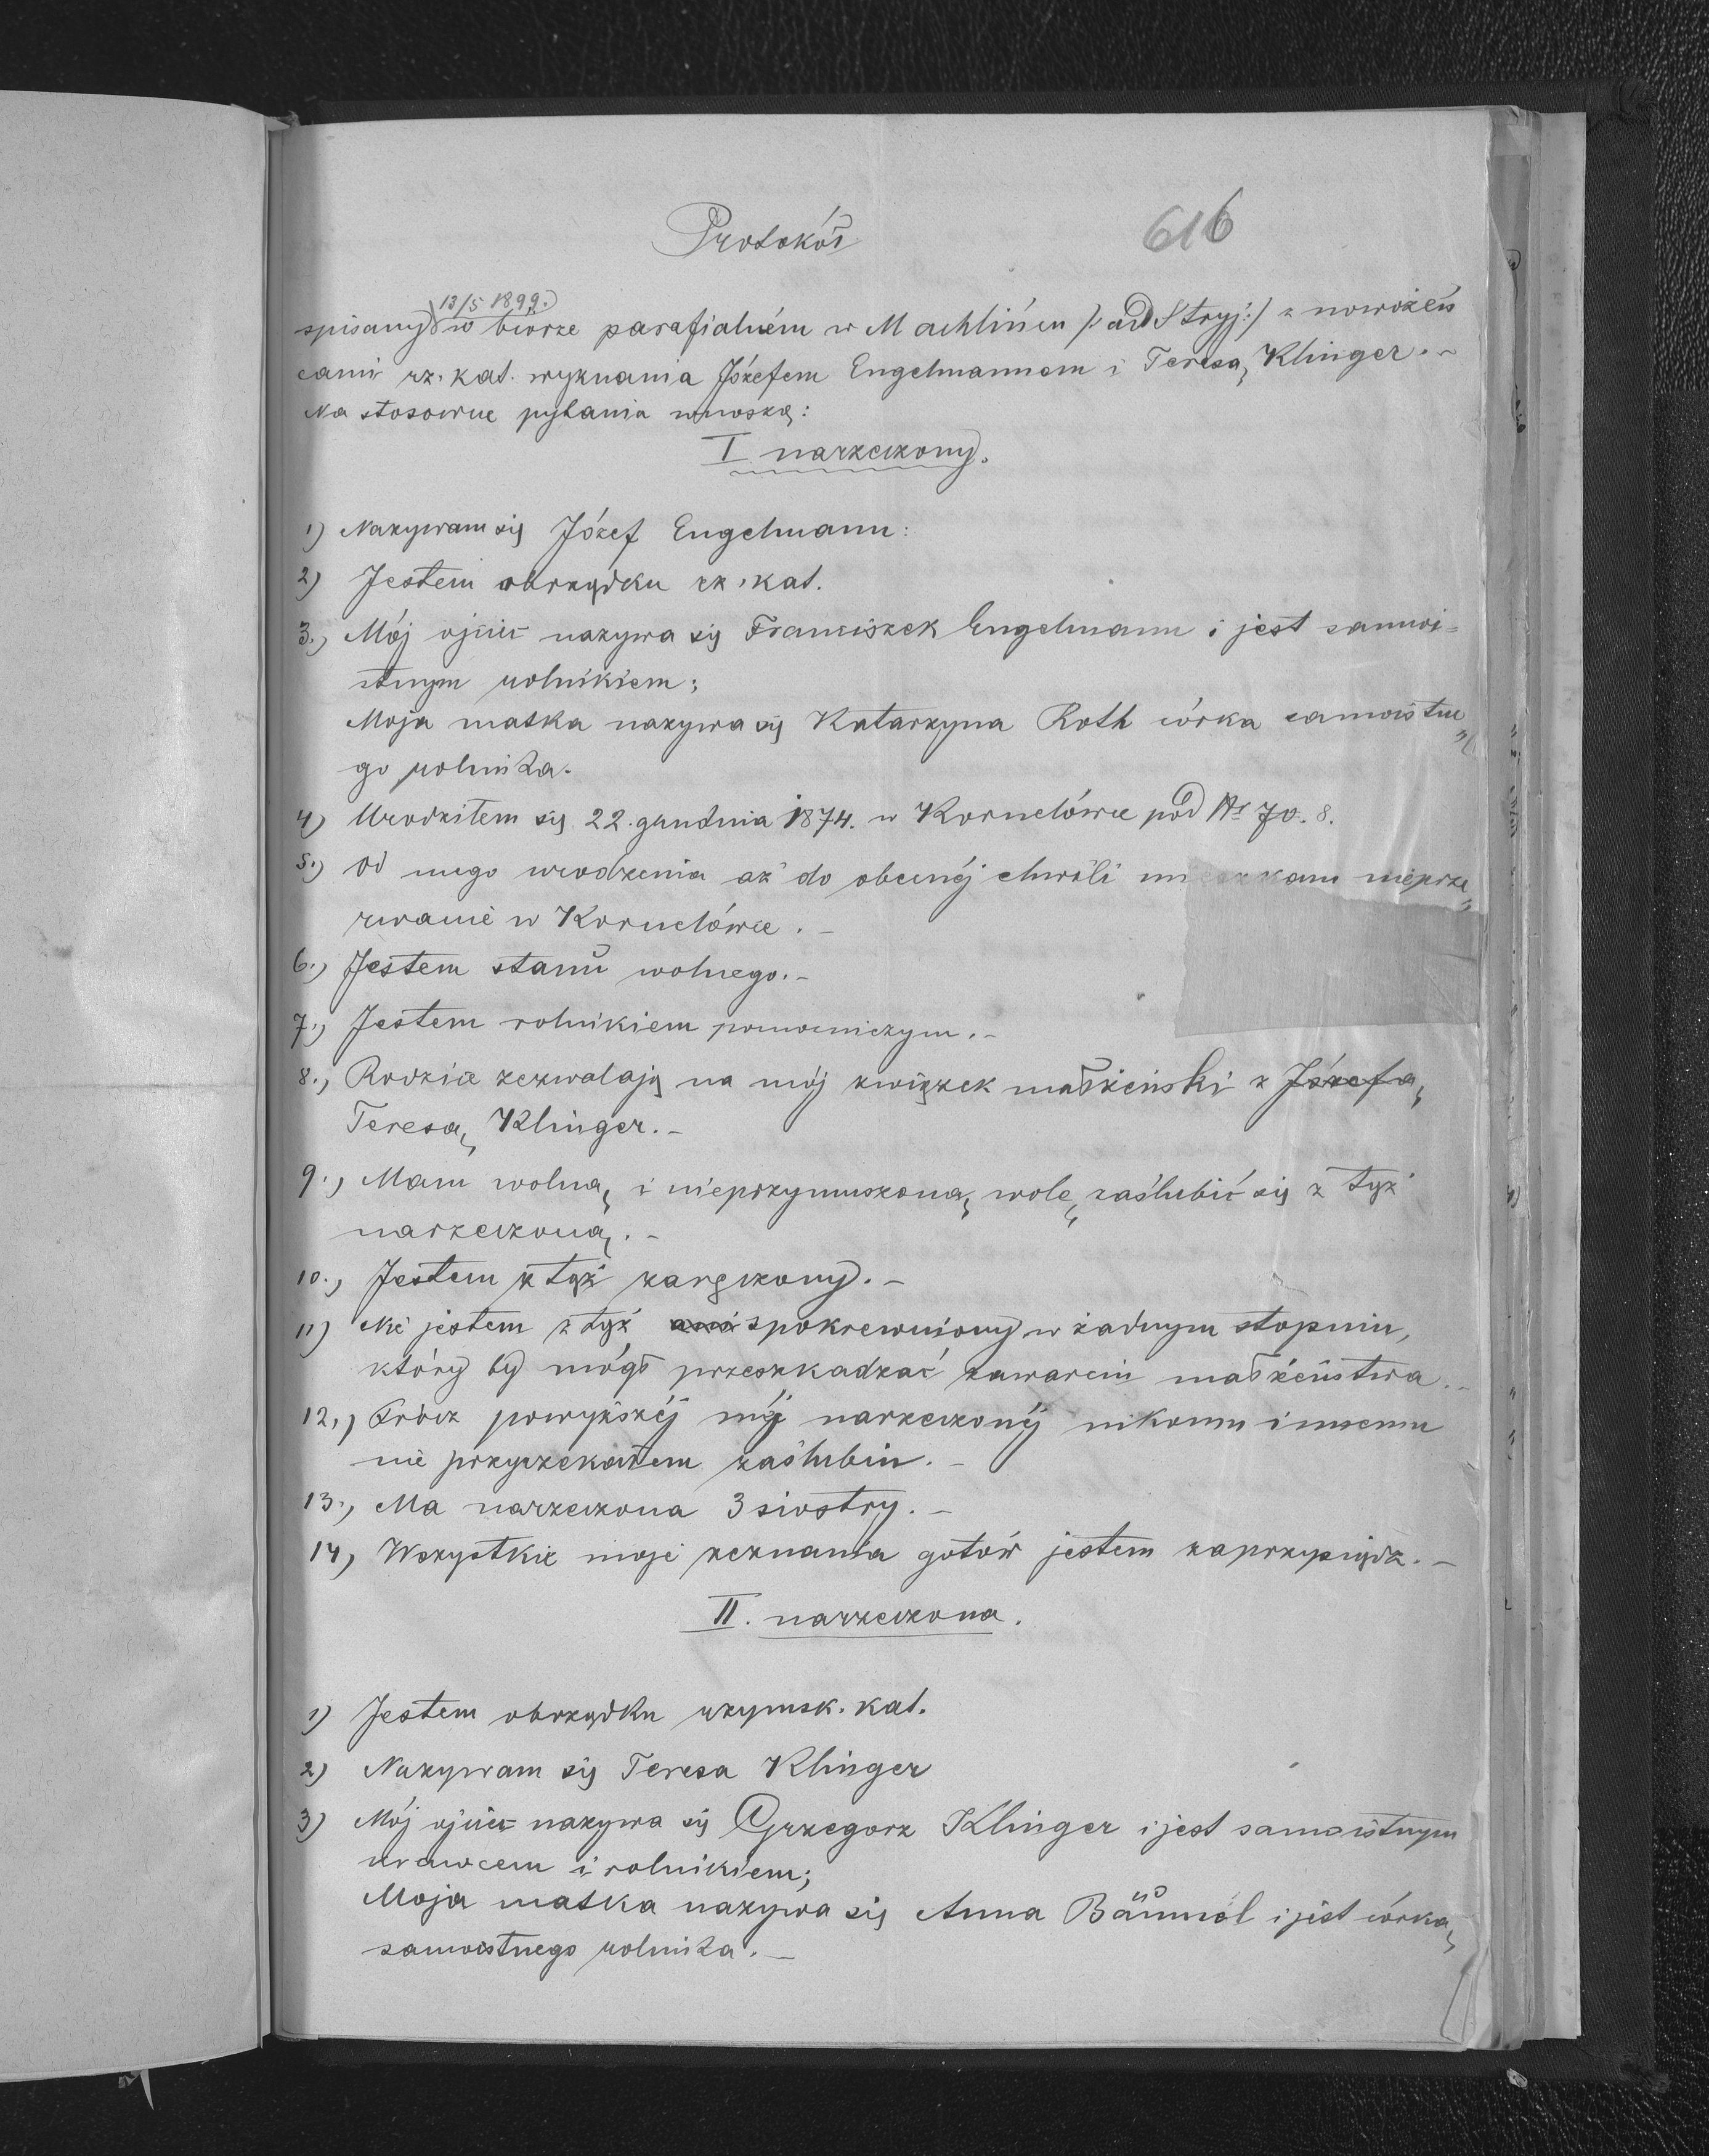 Protokół
616
13/5 1899.
spisany w biórze parafialném w Machlińcu /: ad Stryj :/ z nowożeń
cami rz. kat. wyznania Józefem Engelmannem i Teresą Klinger. -
Na stosowne pytania wnoszą:
I narzeczony.
1) Nazywam się Józef Engelmann:
2) Jestem obrządku rz. kat.
3.) Mój ojciec nazywa się Franciszek Engelmann i jest samoi=
stnym rolnikiem;
Moja matka nazywa się Katarzyna Roth córka samoistne„
go rolnika.
4) Urodziłem się 22. grudnia 1874. w Kornelówce pod № 70. 8.
5.) Od mego urodzenia aż do obecnéj chwili mieszkam nieprze„
rwanie w Kornelówce. -
6.) Jestem stanu wolnego. -
7.) Jestem rolnikiem pomocniczym. -
8.) Rodzice zezwalają na mój związek małżeński z Józefą
Teresą Klinger. -
9.) Mam wolną i nieprzymuszoną wolę zaślubić się z tąż
narzeczoną. -
10.) Jestem z tąż zaręczony. -
11) Nie jestem z tąż ani spokrewniony w żadnym stopniu,
który by mógł przeszkadzać zawarciu małżeństwa. -
12.) Prócz powyższéj méj narzeczonéj nikomu innemu
nie przyrzekałem zaślubin. -
13.) Ma narzeczona 3 siostry. -
14) Wszystkie moje zeznania gotów jestem zaprzysiądz. -
II. narzeczona.
1) Jestem obrządku rzymsk. kat.
2) Nazywam się Teresa Klinger
3) Mój ojciec nazywa się Grzegorz Klinger i jest samoistnym
krawcem i rolnikiem;
Moja matka nazywa się Anna Bäuml i jest córką
samoistnego rolnika. -